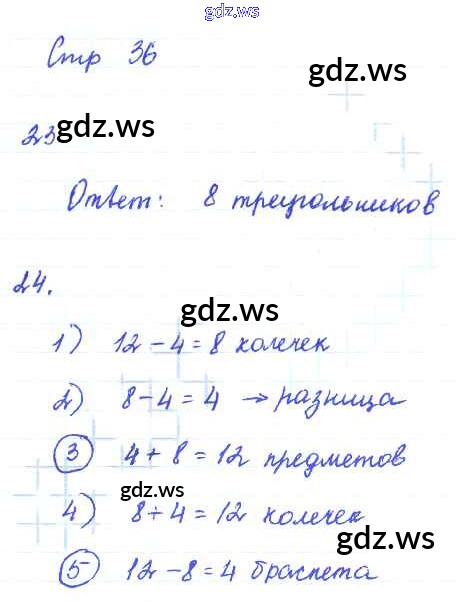 gdz.ws
Стр 36
gdz.ws
23 gdz.ws
Ответ: 8 треугольников
24.
gdz.ws
1) 12 - 4 = 8 колечек
2) 8 - 4 = 4 → разница
3 4 + 8 = 12 предметов
gdz.ws
4) 8 + 4 = 12 колечек
gdz.ws
5 12 - 8 = 4 браслета